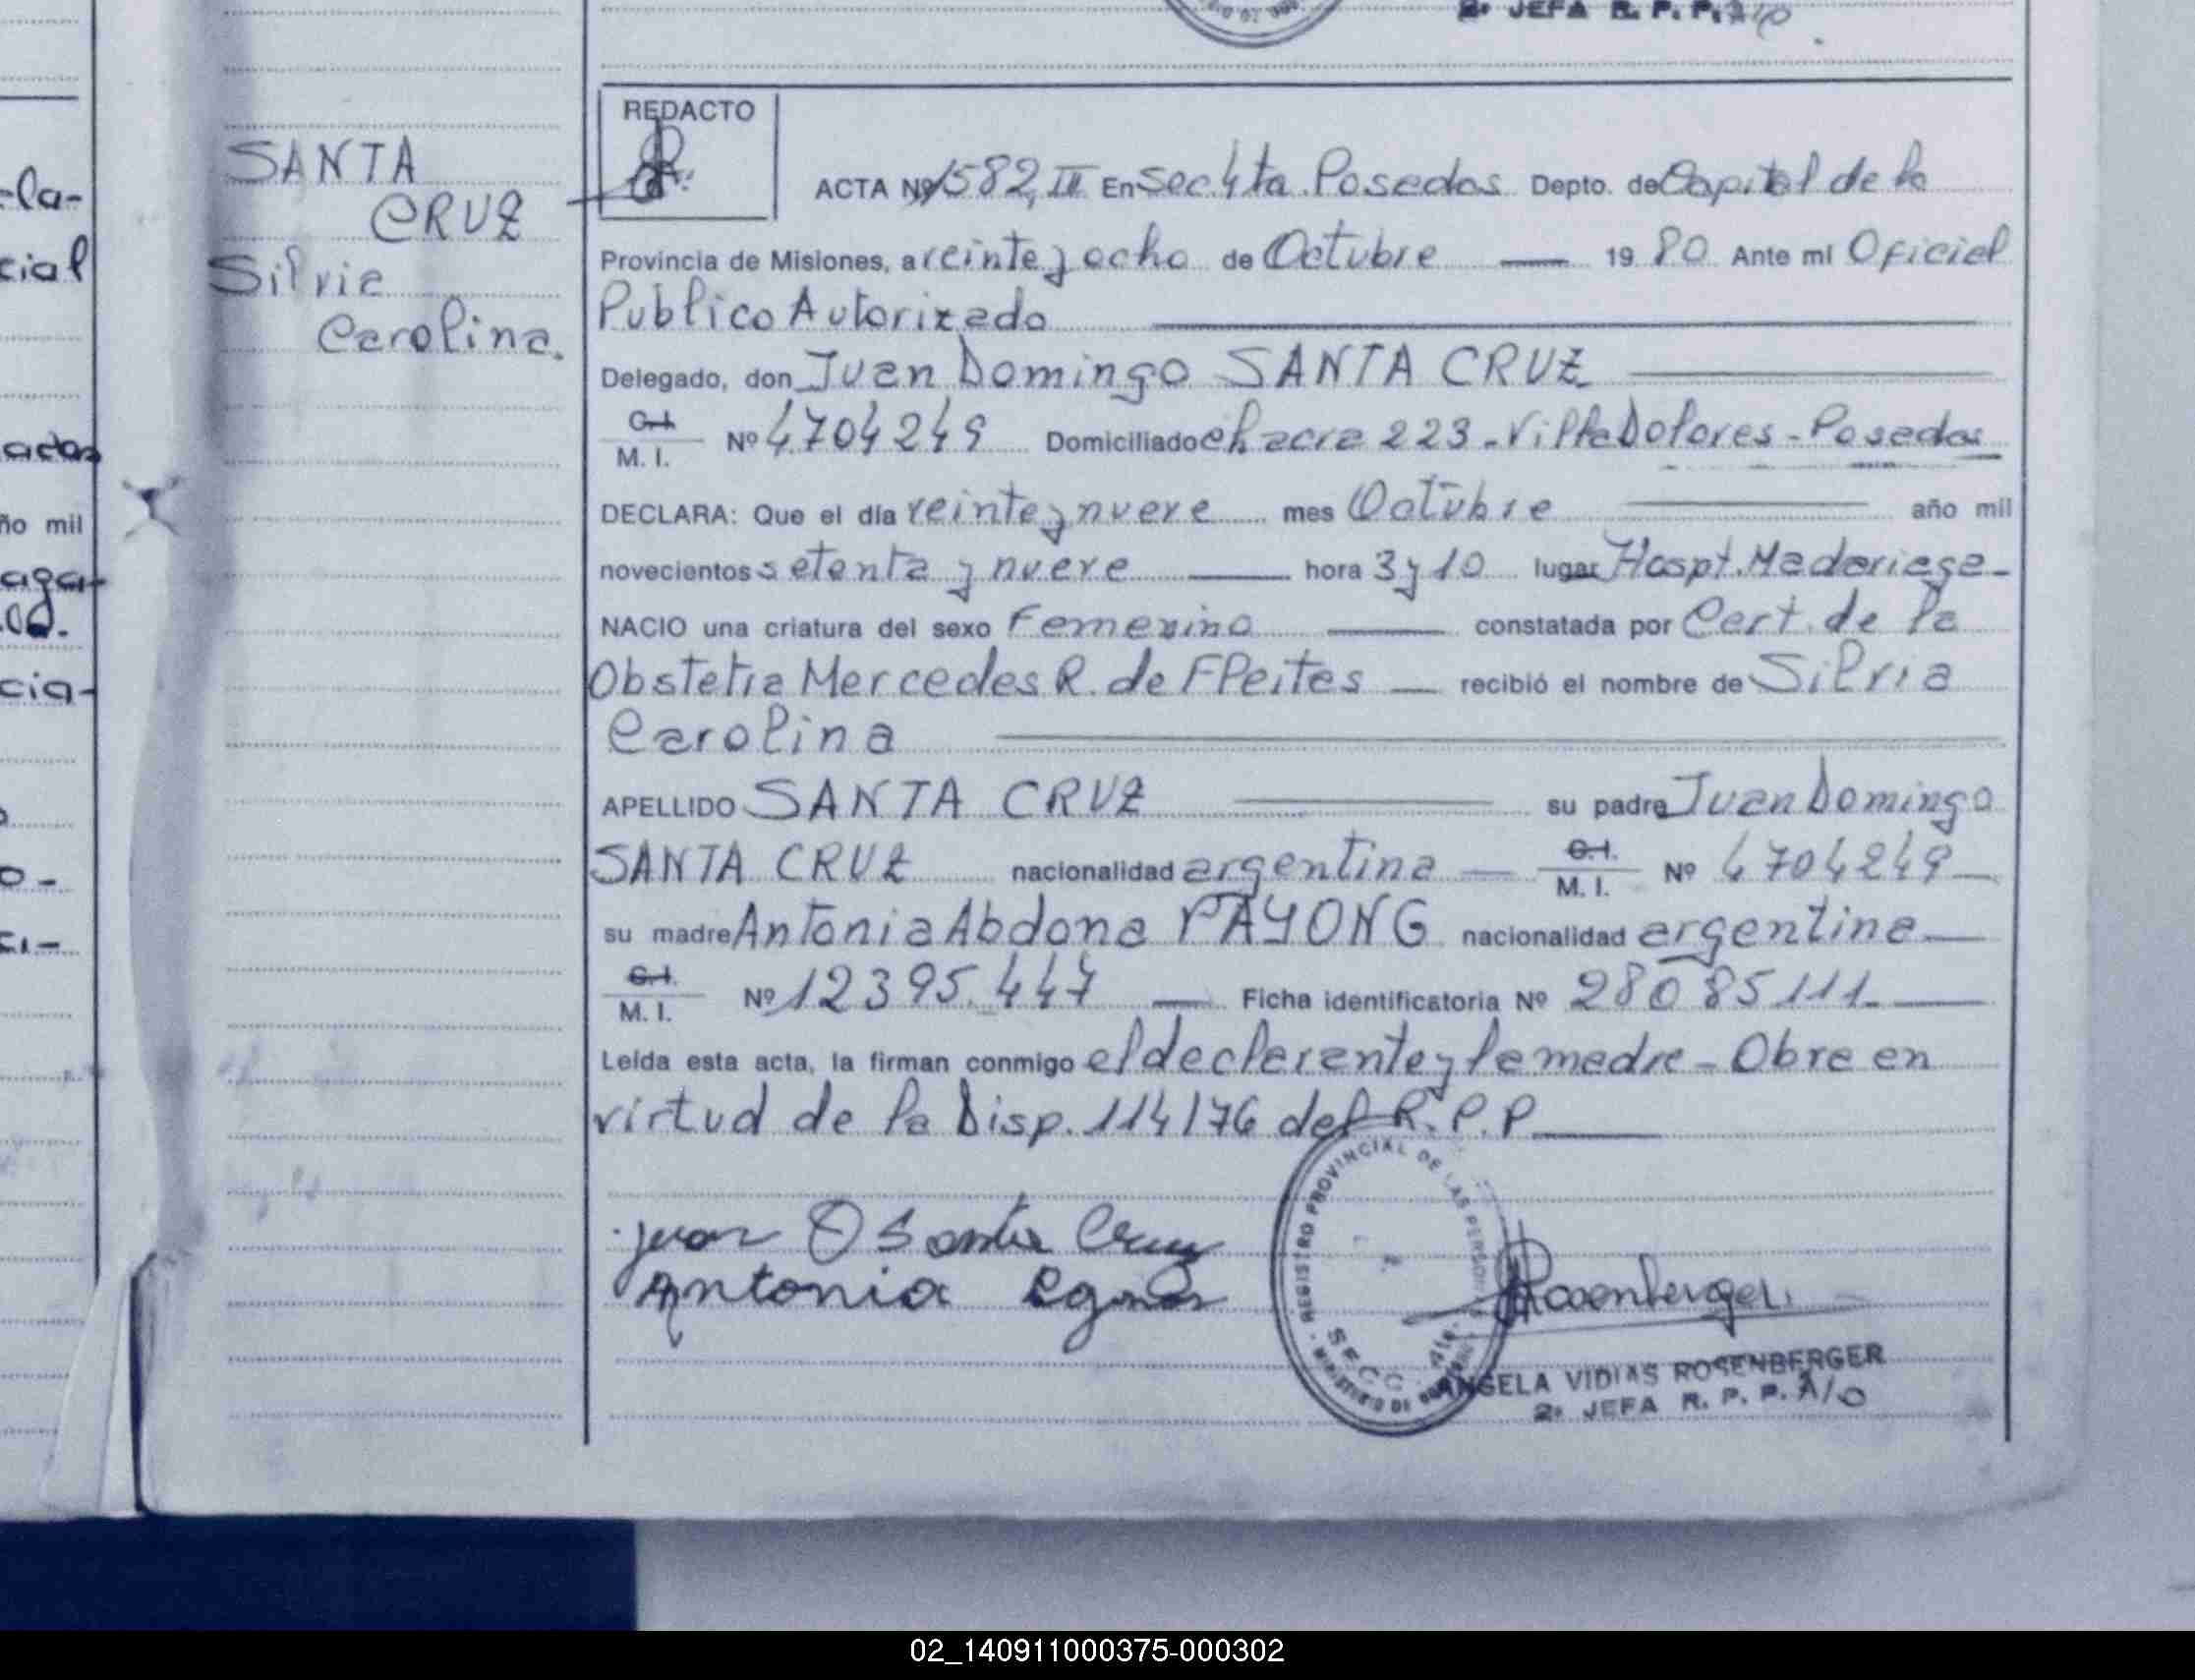 2º JEFA R. P. P. A/O
la-
cial
ados
ño mil
aga-
cia-
SANTA
CRUZ
Silvia
Carolina.
REDACTO
ACTA Nº 1582, III En Sec 4ta. Posadas Depto. de Capital de la
Provincia de Misiones, a veinte y ocho de Octubre 19 80 Ante mí Oficial
Publico Autorizado
Delegado, don Juan Domingo SANTA CRUZ
C.I.
M. I. Nº 4704249 Domiciliado chacra 223 - Villa Dolores - Posadas
DECLARA: Que el día veinte y nueve mes Octubre año mil
novecientos setenta y nueve hora 3 y 10 lugar Hospt. Madariaga -
NACIO una criatura del sexo Femenino constatada por Cert. de la
Obstetra Mercedes R. de Fleites recibió el nombre de Silvia
Carolina
APELLIDO SANTA CRUZ su padre Juan Domingo
SANTA CRUZ nacionalidad argentina C.I. M. I. Nº 4704249
su madre Antonia Abdona PAYONG nacionalidad argentina
C.I.
M. I. Nº 12395.447 Ficha identificatoria Nº 28085111
Leída esta acta, la firman conmigo el declarante y la madre - Obre en
virtud de la Disp. 114/76 del R.P.P
REGISTRO PROVINCIAL DE LAS PERSONAS
SECC. 4ta.
MINISTERIO DE
Juan D Santa Cruz
Antonia
Rosenberger
ANGELA VIDIAS ROSENBERGER
2º JEFA R. P. P. A/O
02_140911000375-000302